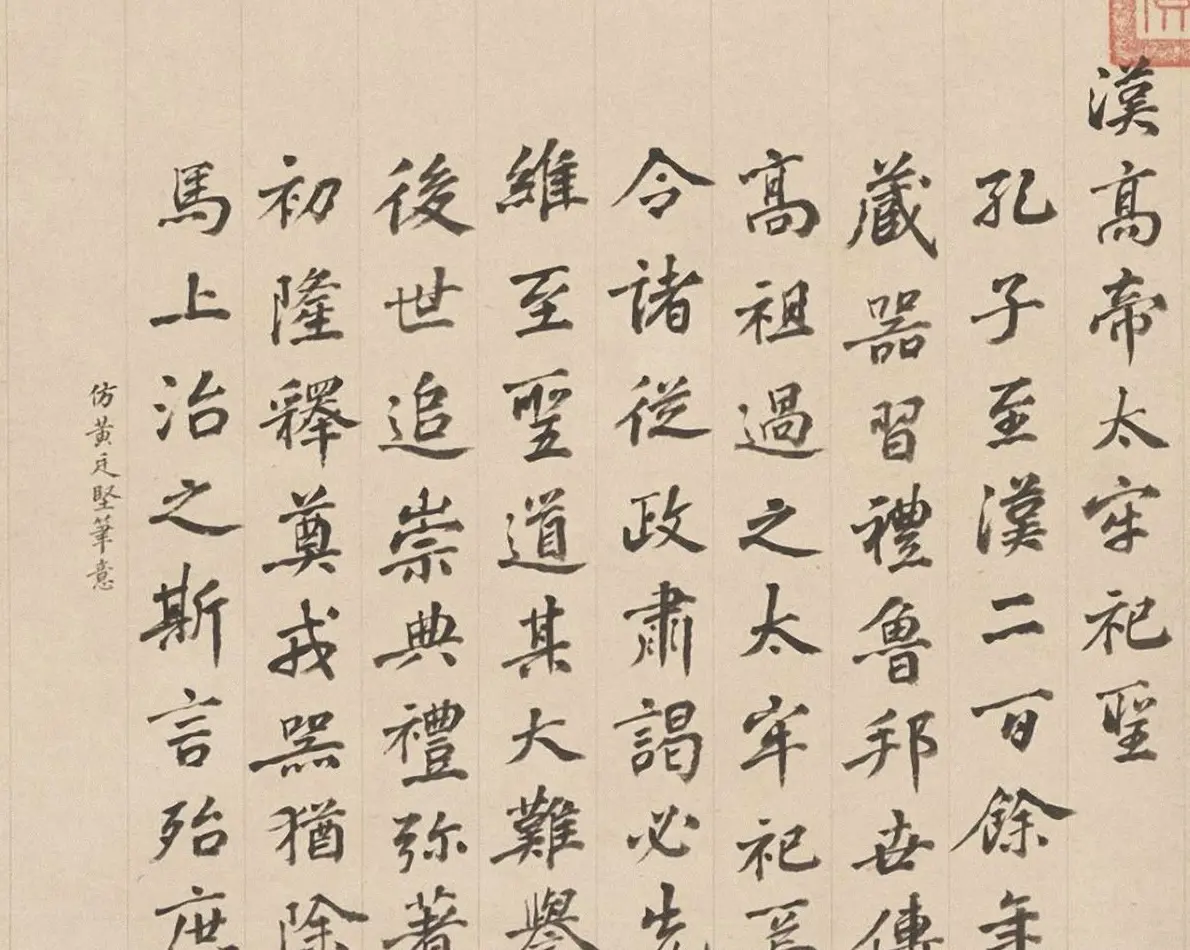 漢高帝太牢祀聖
孔子至漢二百餘年
藏器習禮魯邦世傳
高祖過之太牢祀焉
令諸從政肅謁必先
維至聖道其大難譽
後世追崇典禮弥著
初隆釋奠戎器猶除
馬上治之斯言殆庶
仿黃庭堅筆意